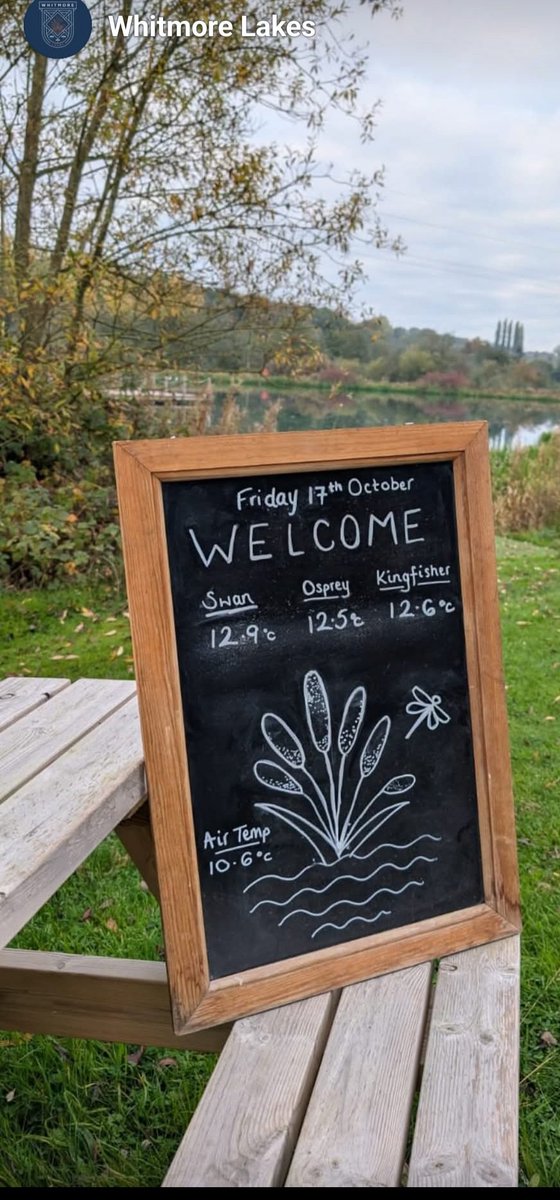 WHITMORE
Whitmore Lakes
Friday 17th October
WELCOME
Swan Osprey Kingfisher
12.9°c 12.5°c 12.6°c
Air Temp
10.6°c